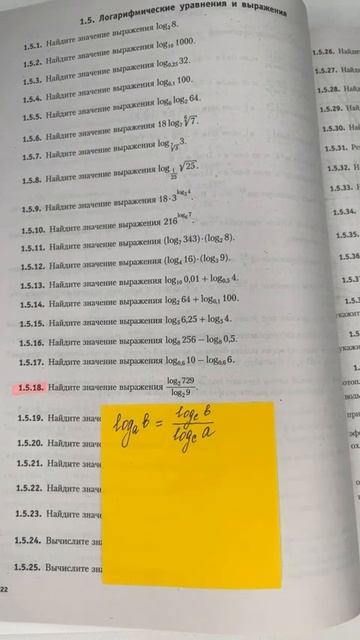 1.5. Логарифмические уравнения и выражения
1.5.1. Найдите значение выражения log₂8.
1.5.2. Найдите значение выражения log₁₀1000.
1.5.3. Найдите значение выражения log₀,₂₅32.
1.5.4. Найдите значение выражения log₀,₁100.
1.5.5. Найдите значение выражения log₆log₂64.
1.5.6. Найдите значение выражения 18log₇
1.5.7. Найдите значение выражения log
1.5.8. Найдите значение выражения log
1.5.9. Найдите значение выражения 18·3^(log₃4).
1.5.10. Найдите значение выражения 216^(log₆7).
1.5.11. Найдите значение выражения (log₇343)·(log₂8).
1.5.12. Найдите значение выражения (log₄16)·(log₃9).
1.5.13. Найдите значение выражения log₁₀0,01+log₀,₅4.
1.5.14. Найдите значение выражения log₂64+log₀,₁100.
1.5.15. Найдите значение выражения log₅6,25+log₅4.
1.5.16. Найдите значение выражения log₈256−log₈0,5.
1.5.17. Найдите значение выражения log₀,₆10−log₀,₆6.
1.5.18. Найдите значение выражения log₂729/log₂9.
1.5.19. Найдите знач
1.5.20. Найдите знач
1.5.21. Найдите знач
1.5.22. Найдите знач
1.5.23. Найдите знач
1.5.24. Вычислите зна
1.5.25. Вычислите зна
22
logₐb = log꜀b/log꜀a
1.5.26. Найдит
1.5.27. Найд
1.5.28. Най
1.5.29. На
1.5.30. На
1.5.31. Ре
1.5.32. Н
1.5.33.
1.5.34.
1.5.35.
1.5.36